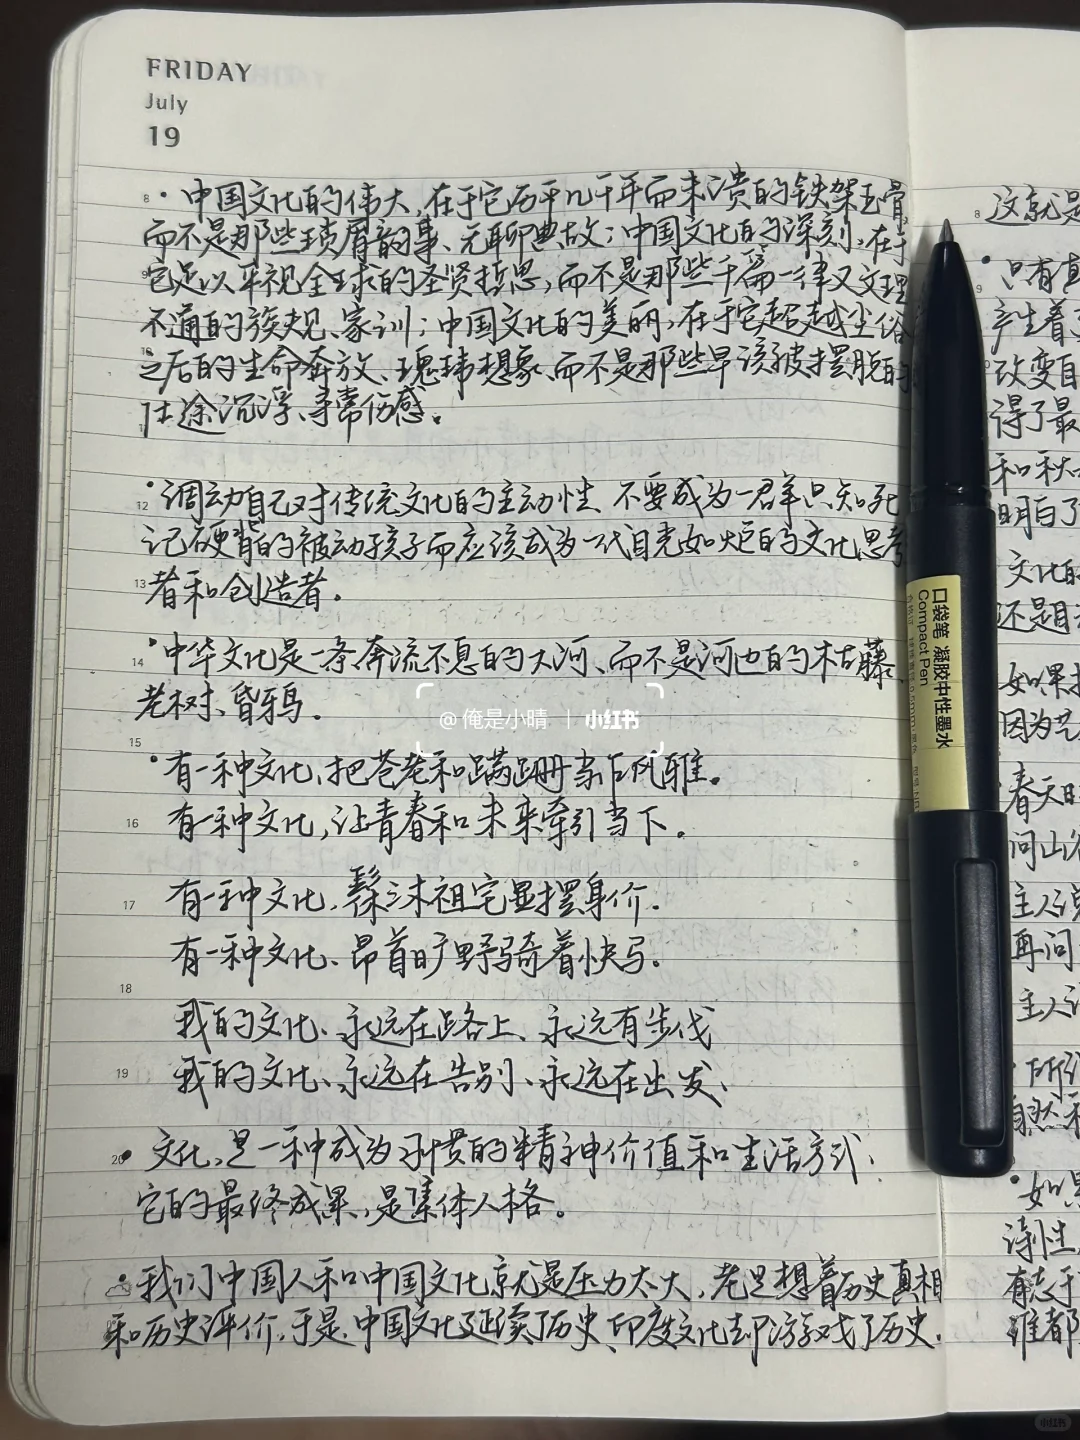 FRIDAY
July
19
8 · 中国文化的伟大,在于它历乎几千年而未溃的铁架玉骨,
而不是那些琐屑韵事、无聊典故;中国文化的深刻,在于
它足以平视全球的圣贤哲思,而不是那些千篇一律又文理
不通的族规、家训;中国文化的美丽,在于它超越尘俗
之后的生命奔放、瑰玮想象、而不是那些早该被摆脱的
仕途沉浮、寻常伤感。
12 ·调动自己对传统文化的主动性、不要成为一群只知死
记硬背的被动孩子而应该成为一代目光如炬的文化思考
13 者和创造者.
14 ·中华文化是一条奔流不息的大河、而不是河边的枯藤、
老树、昏鸦.
15
·有一种文化,把苍老和蹒跚当作风雅。
16 有一种文化,让青春和未来牵引当下.
17 有一种文化,祖宅显摆身价.
有一种文化、昂首旷野骑着快马.
18
我的文化、永远在路上、永远有步伐
19 我的文化、永远在告别、永远在出发、
20 · 文化,是一种成为习惯的精神价值和生活方式.
它的最终成果,是集体人格。
·我们中国人和中国文化就是压力太大,老是想着历史真相
和历史评价,于是,中国文化延续了历史、印度文化却游戏了历史.
8 这就是
·只有
9
产生着
改变自
得了最
和秋
明白了
文化的
还是
如果
因为艺
·春天
问山
主人说
再问
主人
·所
自然和
·如果
诗性
有志于
谁都
口袋笔 凝胶中性墨水
Compact Pen
@俺是小晴 | 小红书
小红书